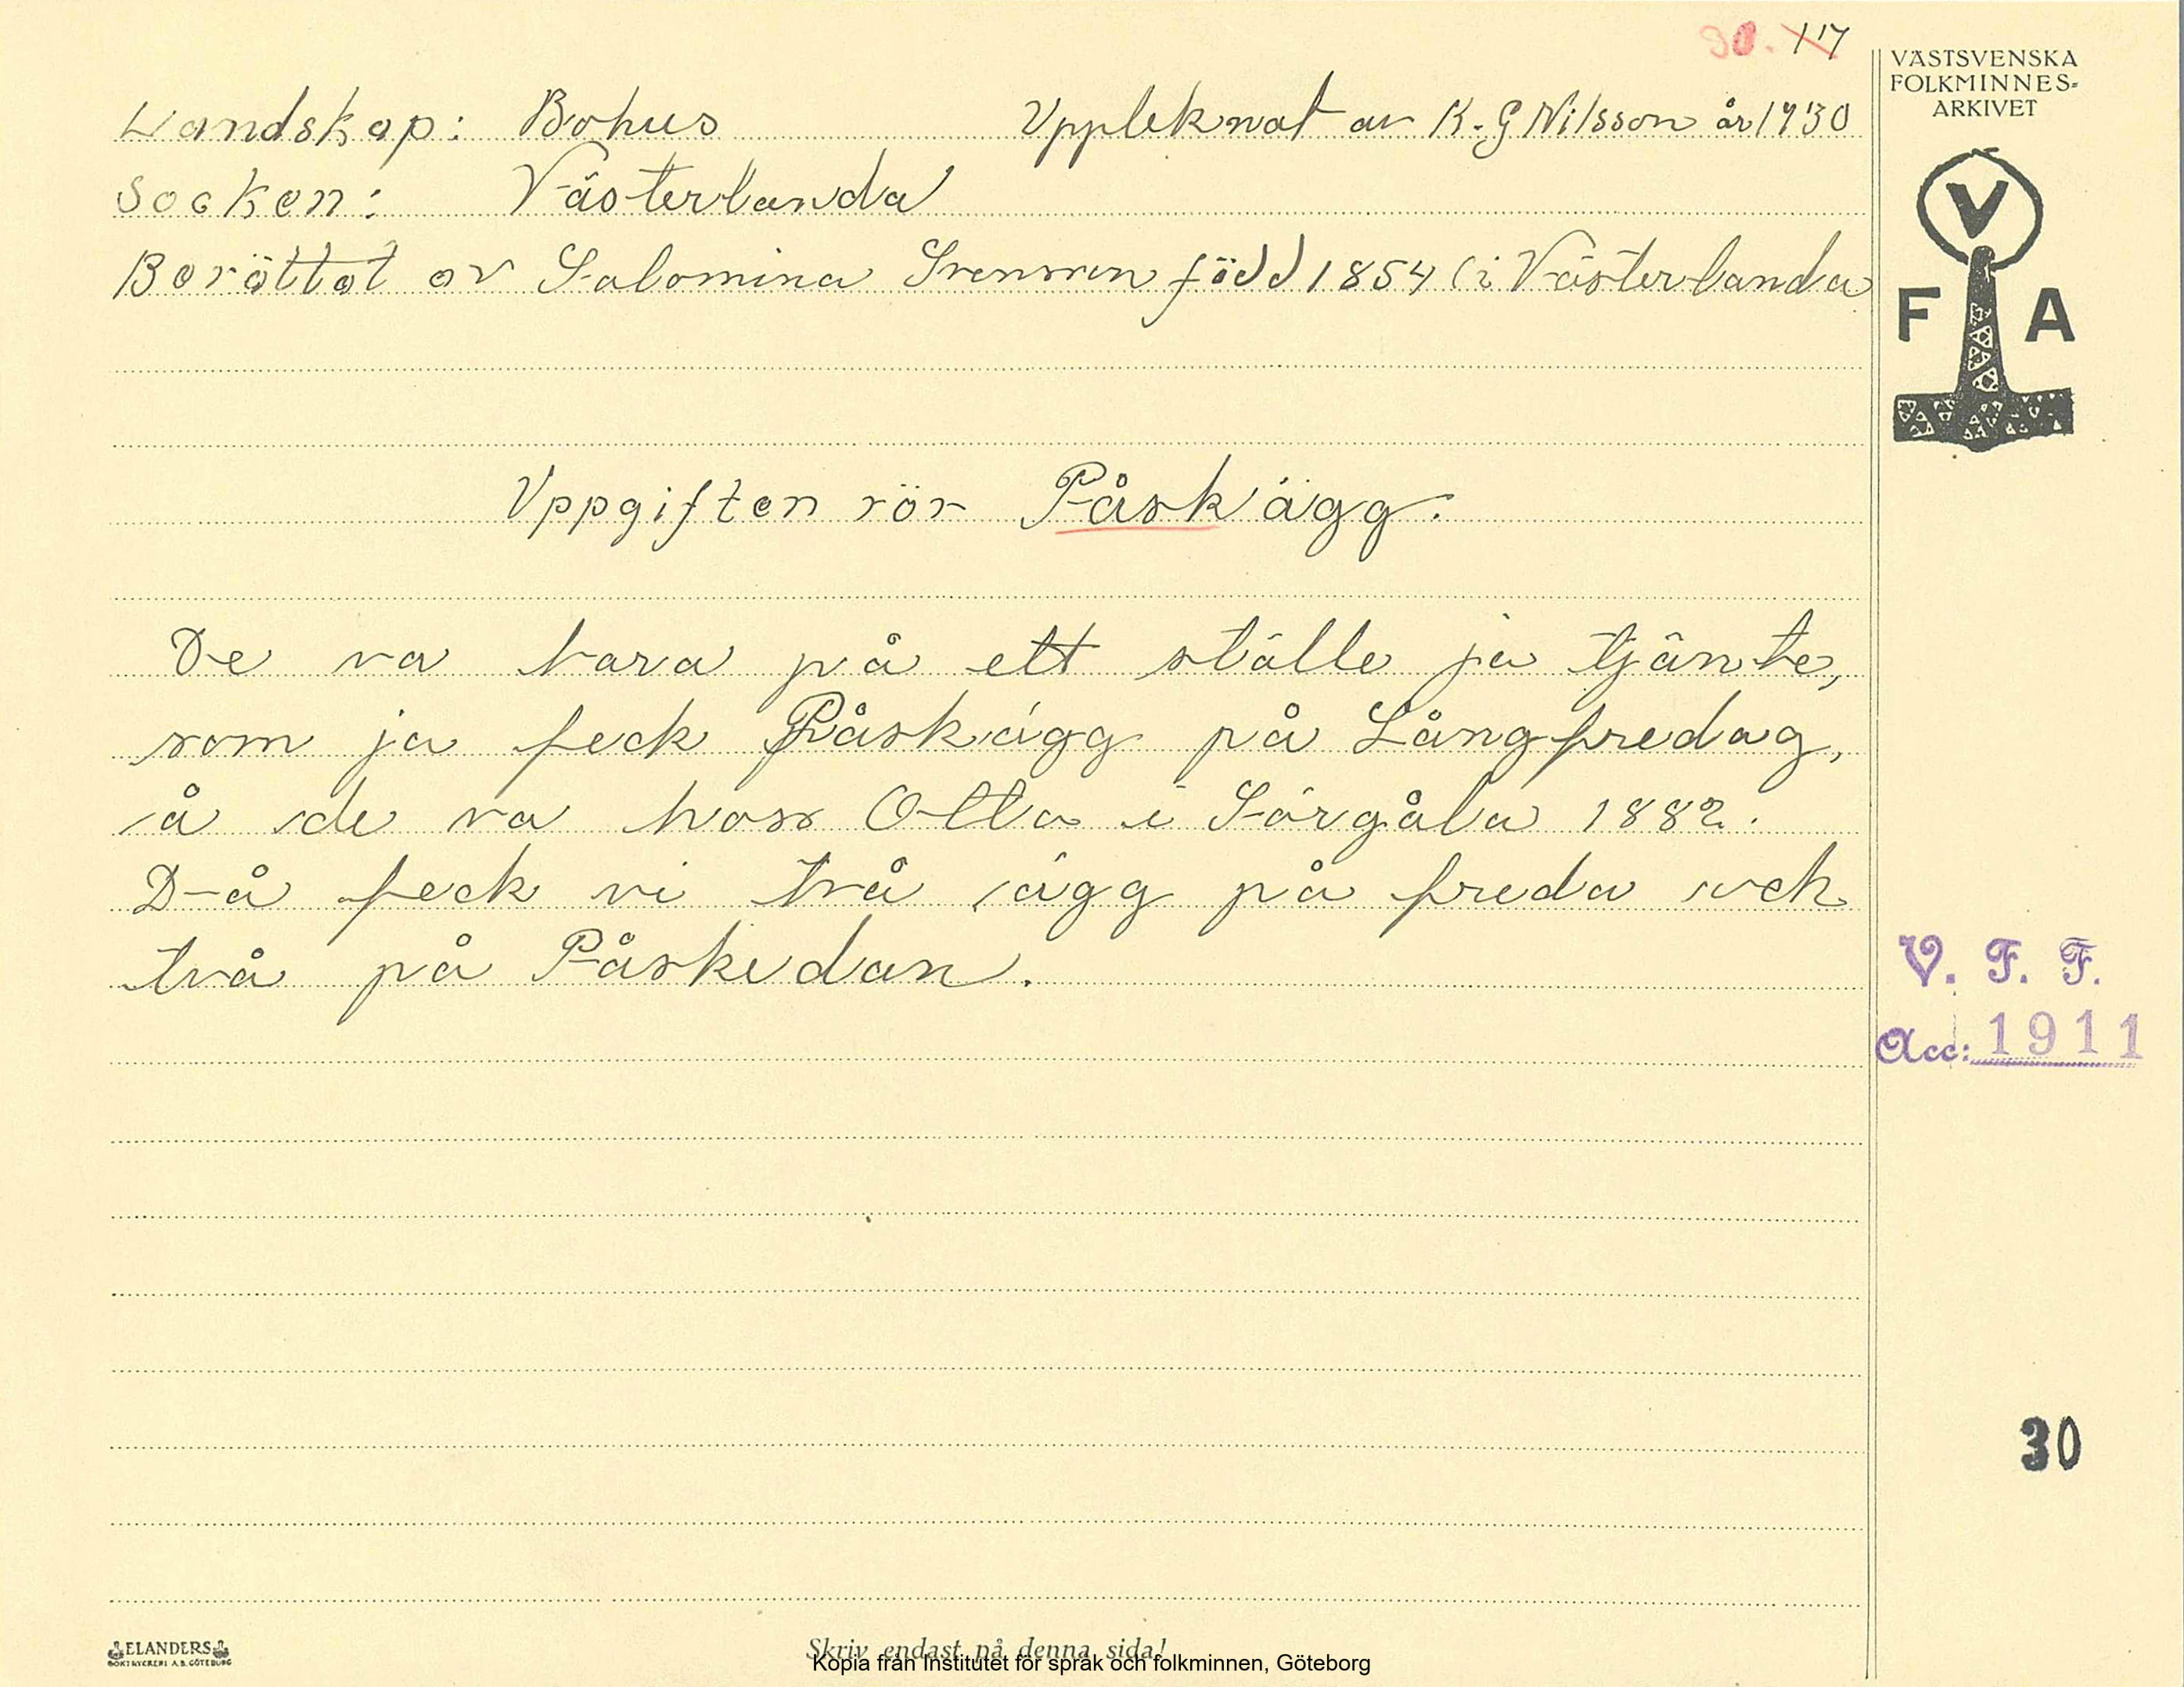 30. 17
VÄSTSVENSKA
FOLKMINNES-
ARKIVET
Landskap: Bohus Uppteknat av K. G Nilsson år 1930
Socken: Västerlanda
Berättat av Salomina Svensson född 1854 i Västerlanda
V
F A
Uppgiften rör Påskägg.
De va bara på ett ställe ja tjänte,
som ja feck Påskägg på Långfredag,
å de va hoss Olla i Sörgåla 1882.
Då feck vi två ägg på freda och
två på Påskedan.
V. F. F.
Acc: 1911
30
ELANDERS
BOKTRYCKERI A.B. GÖTEBORG
Skriv endast på denna sida!
Kopia från Institutet för språk och folkminnen, Göteborg